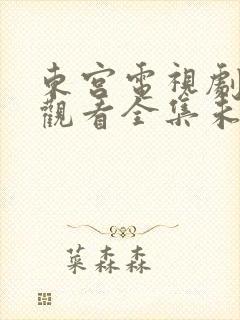 東宮電視劇
觀看全集未
菜森森